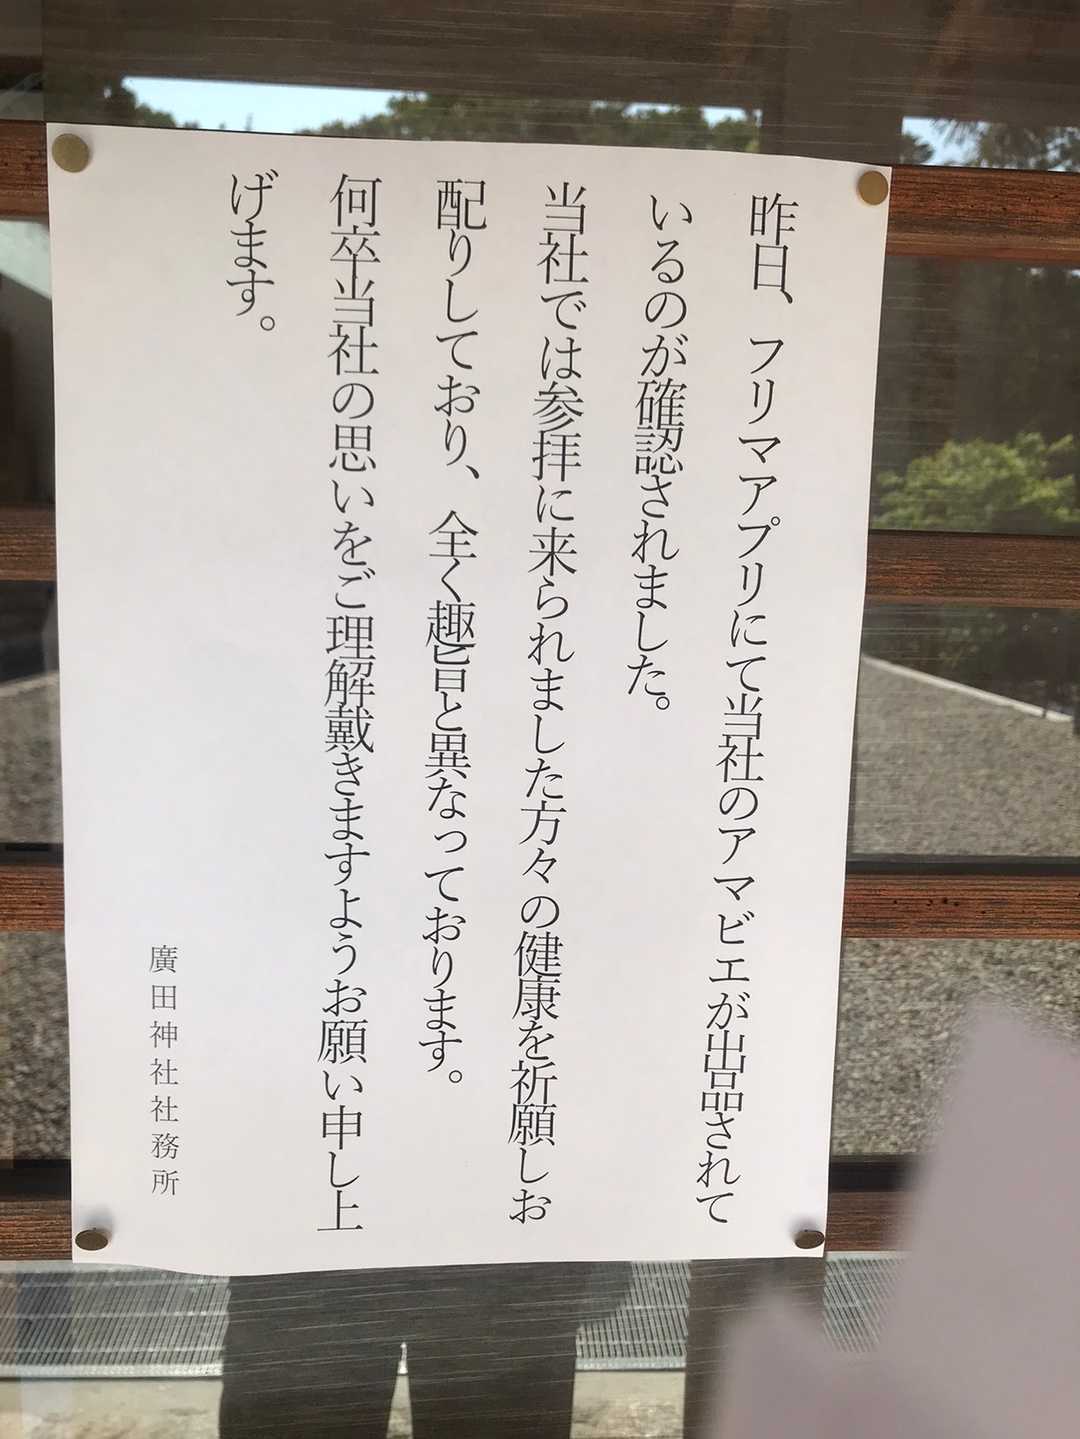 昨日、フリマアプリにて当社のアマビエが出品されて
いるのが確認されました。
当社では参拝に来られました方々の健康を祈願しお
配りしており、全く趣旨と異なっております。
何卒当社の思いをご理解戴きますようお願い申し上
げます。
廣田神社社務所